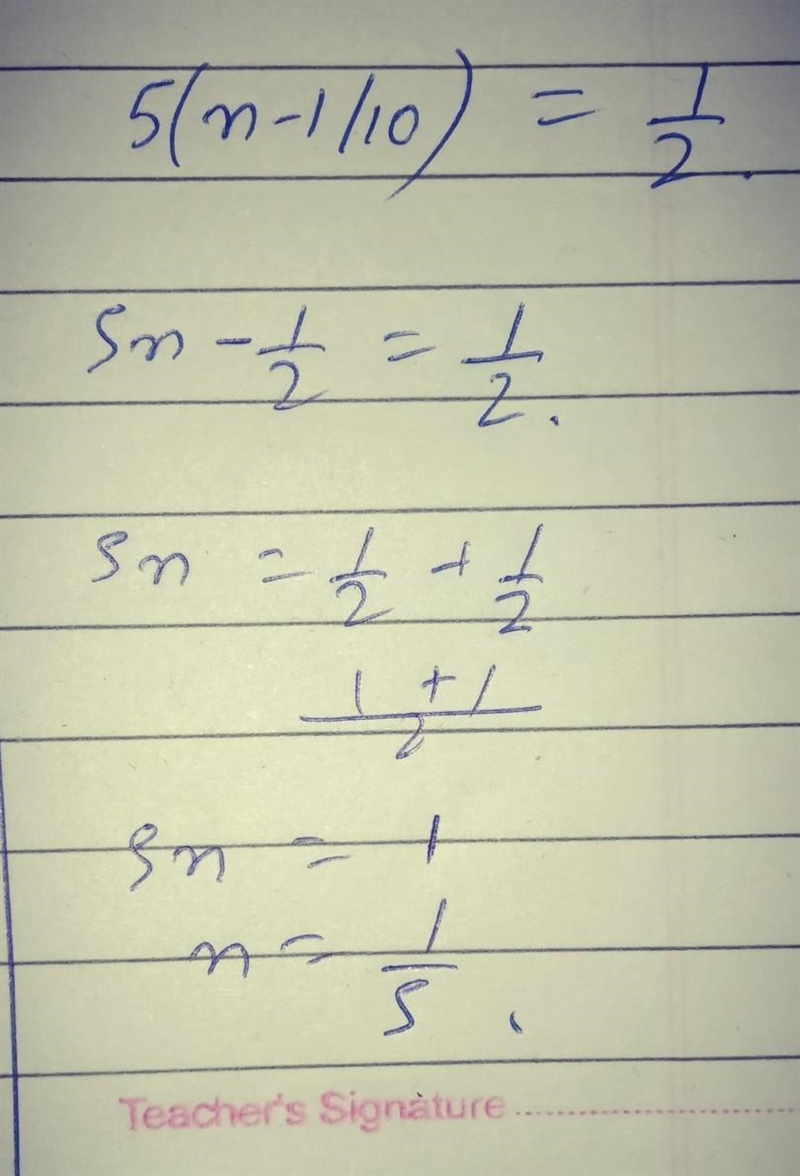 5(n-1/10) = 1/2.
5n - 1/2 = 1/2.
5n = 1/2 + 1/2
1+1/2
5n = 1
n = 1/5.
Teacher's Signature ..............................